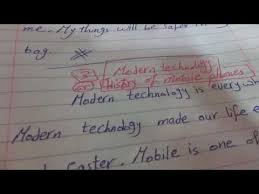 me. My things will be safer
bag
Modern technology
History of mobile phones
Modern technology is everywh
Modern technology made our life e
Easter. Mobile is one of